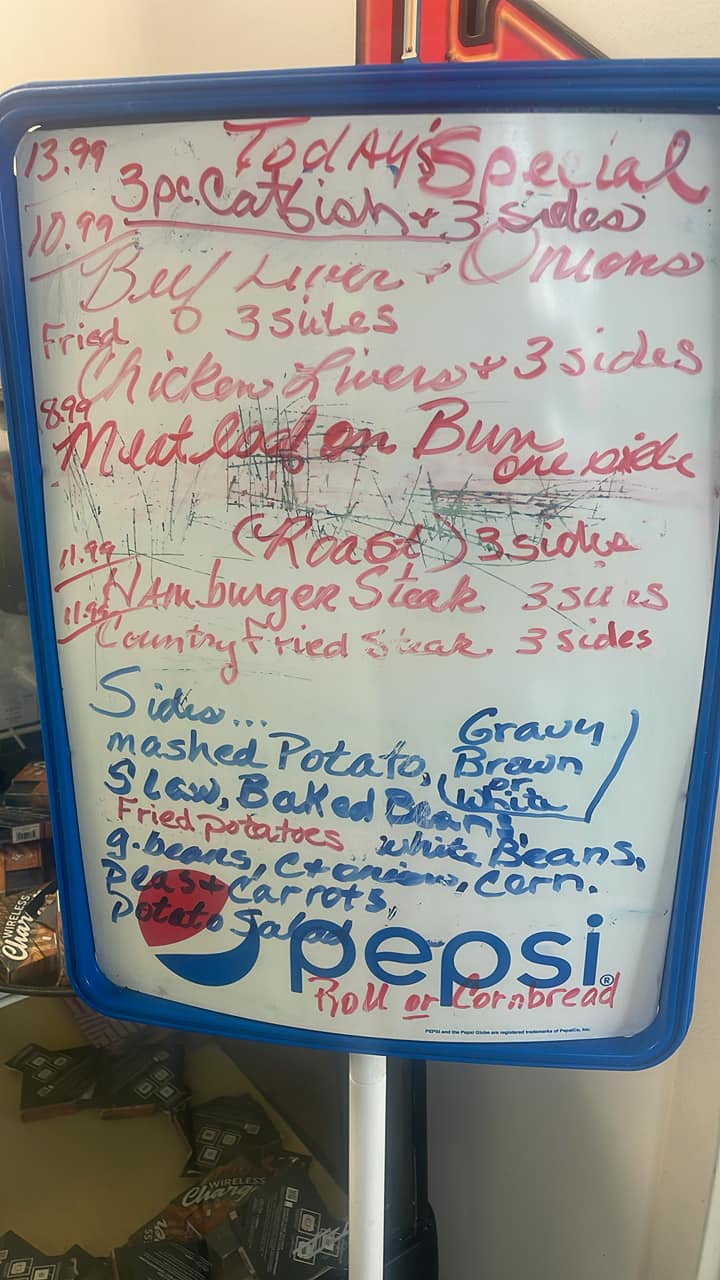 13.99 Today's Special
3pc. Catfish + 3 sides
10.99
Beef Liver + Onions
3 sides
Fried
Chicken Livers + 3 sides
8.99
Meatloaf on Bun
one side
(Roast) 3 sides
11.99
Hamburger Steak 3 sides
11.99
Country Fried Steak 3 sides
Sides...
Gravy
mashed Potato, Brown
or
Slaw, Baked Beans, White
Fried potatoes white Beans,
g. beans, C+onions, corn.
Peas + Carrots,
potato Salad
pepsi®
Roll or Cornbread
PEPSI and the Pepsi Globe are registered trademarks of PepsiCo, Inc.
WIRELESS
Char
WIRELESS
Charg